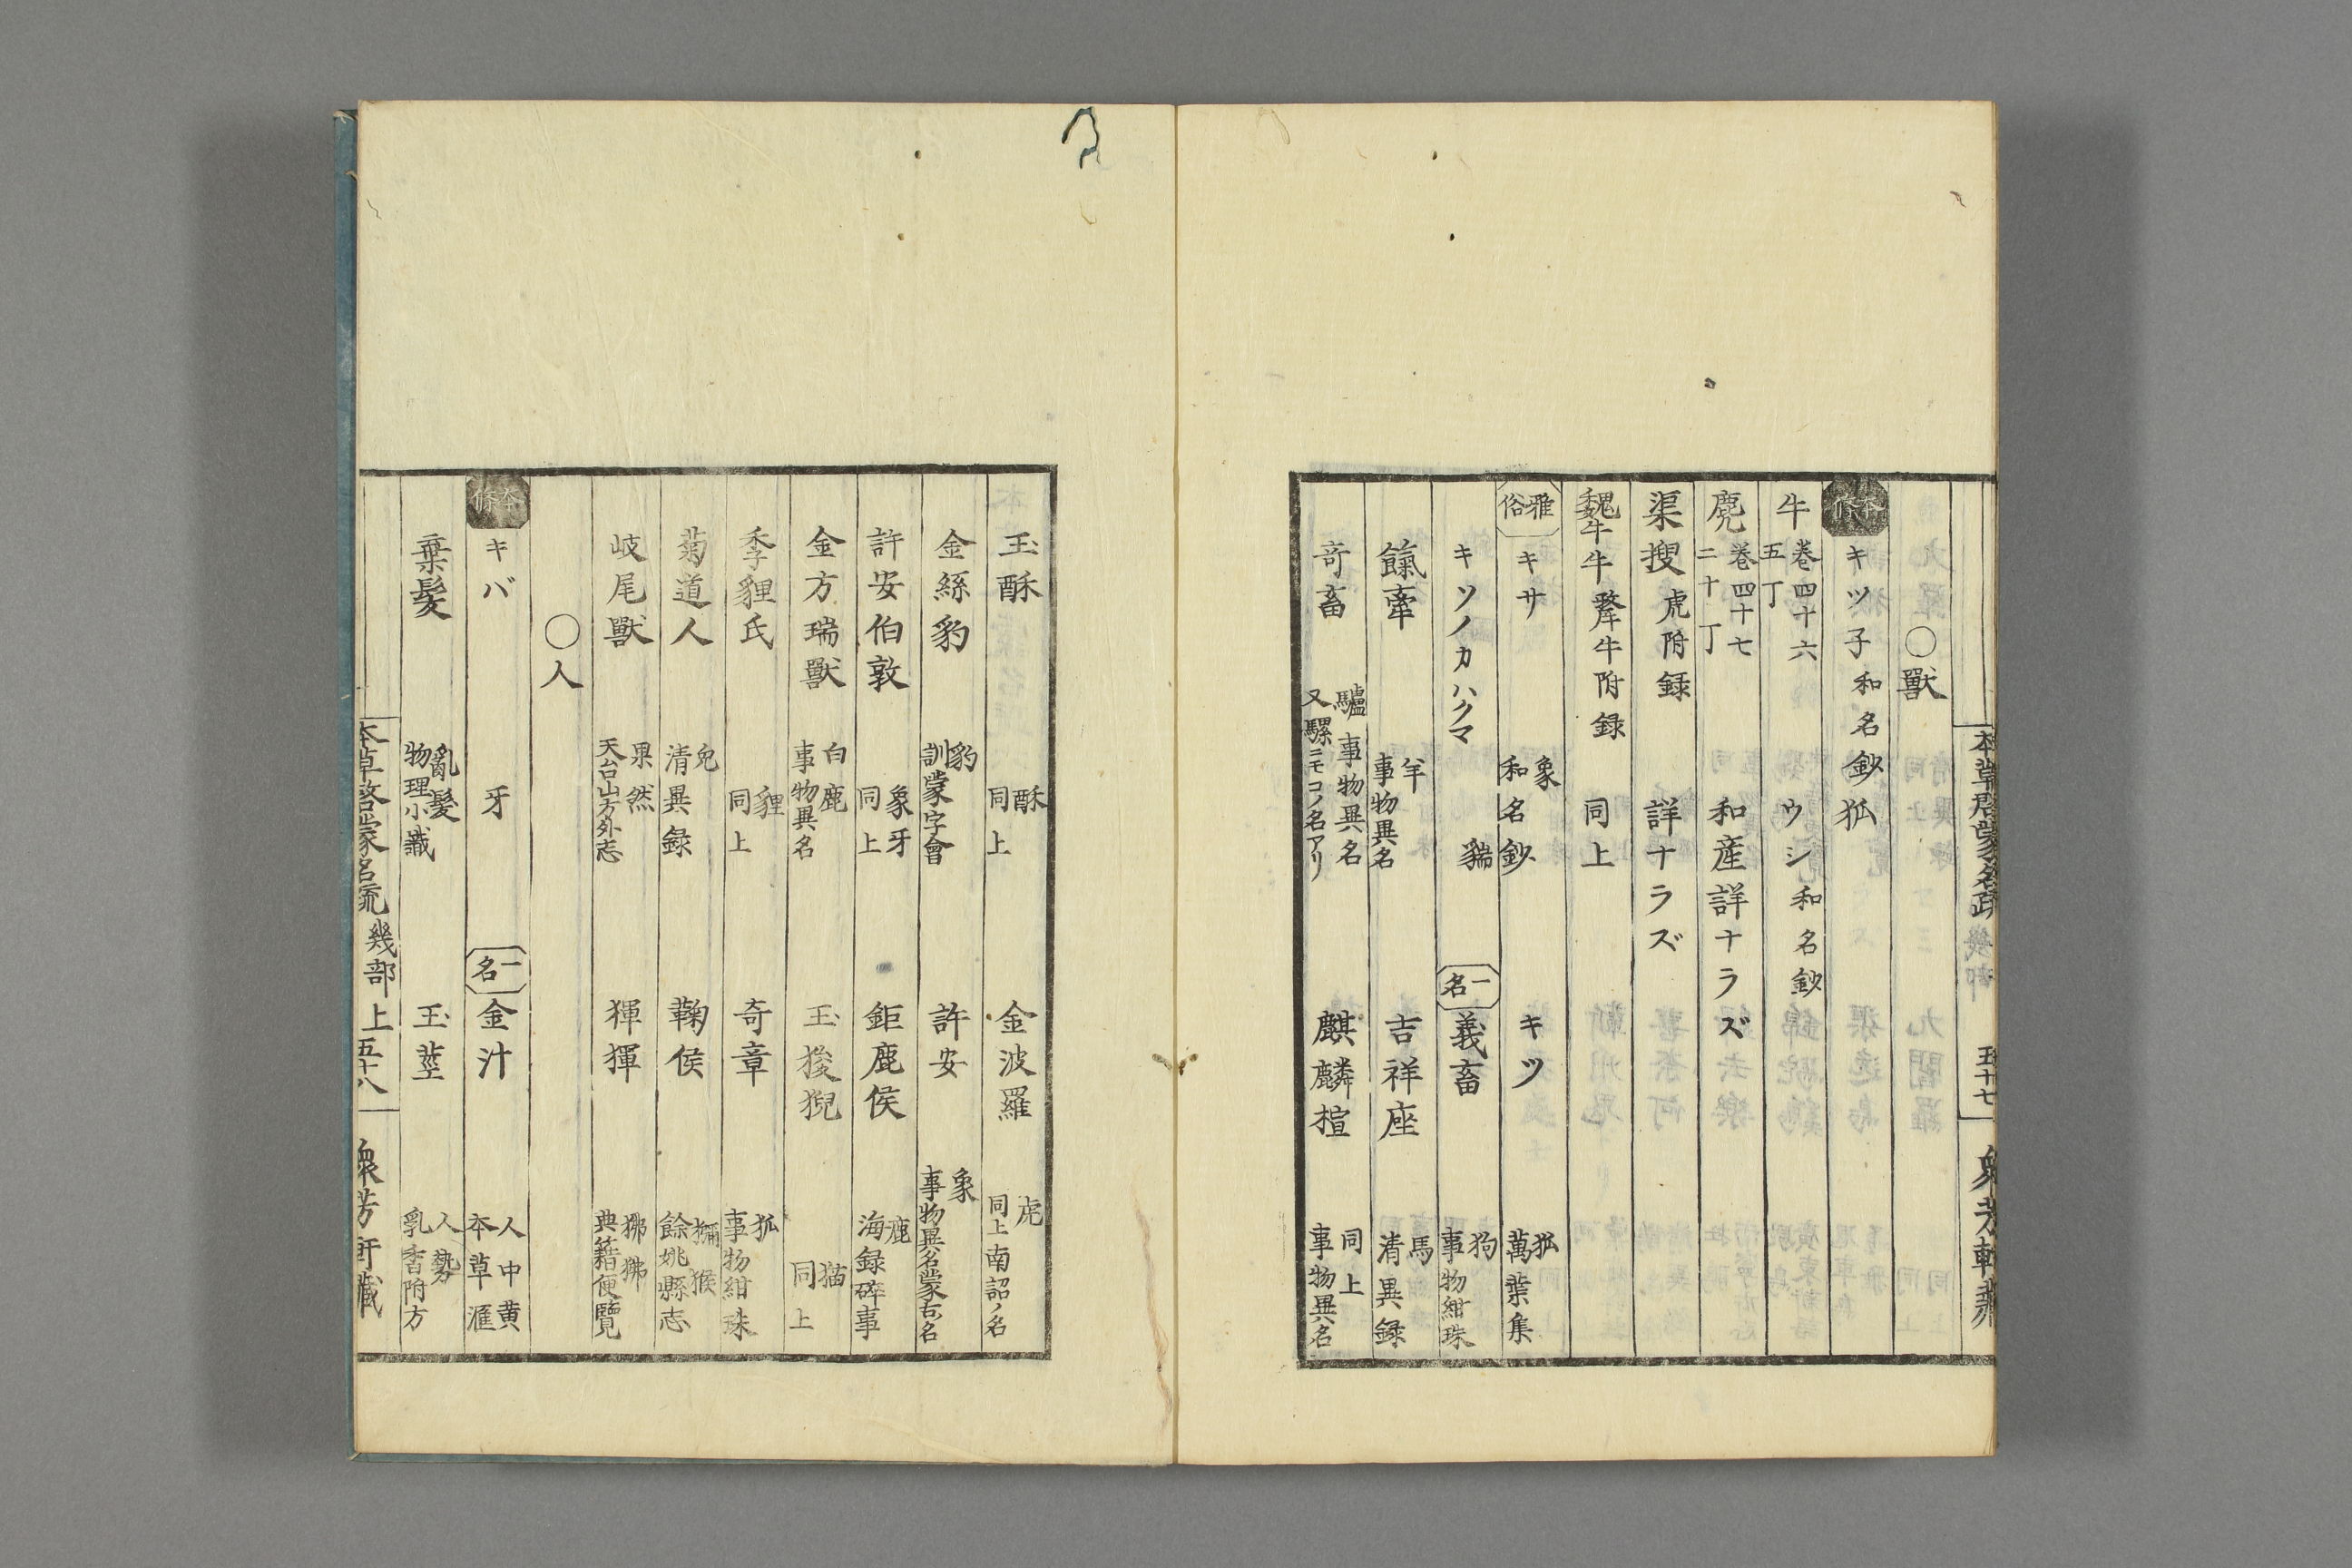 本草啓蒙名疏 幾部 五十七 衆芳軒藏
〇獸
本條 キツ子 和名鈔 狐
牛 巻四十六 五丁 ウシ 和名鈔
麂 巻四十七 二十丁 和産詳ナラズ
渠搜 虎附録 詳ナラズ
犩牛 牛 犛牛附録 同上
雅俗 キサ 象 和名鈔 キツ 狐 萬葉集
キソノカハクマ 貒 一名 義畜 狗 事物紺珠
羊 事物異名 吉祥座 馬 清異録
奇畜 驢 事物異名 又騾ニモコノ名アリ 麒麟楦 同上 事物異名
玉酥 酥 同上 金波羅 虎 同上 南詔ノ名
金絲豹 豹 訓蒙字會 許安 象 事物異名 蒙古ノ名
許安伯敦 象牙 同上 鉅鹿侯 鹿 海録碎事
金方瑞獸 白鹿 事物異名 玉狻猊 猫 同上
季貍氏 貍 同上 奇章 狐 事物紺珠
菊道人 兎 清異録 鞠侯 獼猴 餘姚縣志
岐尾獸 果然 天台山方外志 獋獋 狒狒 典籍便覽
〇人
本條 キバ 牙 一名 金汁 人中黄 本草滙
棄髮 亂髮 物理小識 玉莖 人勢 乳香附方
本草啓蒙名疏 幾部 上 五十八 衆芳軒藏